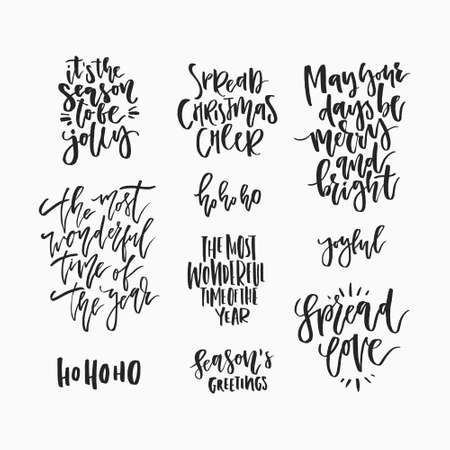 it's the
season
to be
jolly
the most
wonderful
time of
the year
HO HO HO
SPREAD
CHRISTMAS
CHEER
ho ho ho
THE MOST
WONDERFUL
TIME OF THE
YEAR
Season's
GREETINGS
May Your
days be
merry
and
bright
joyful
Spread
Love